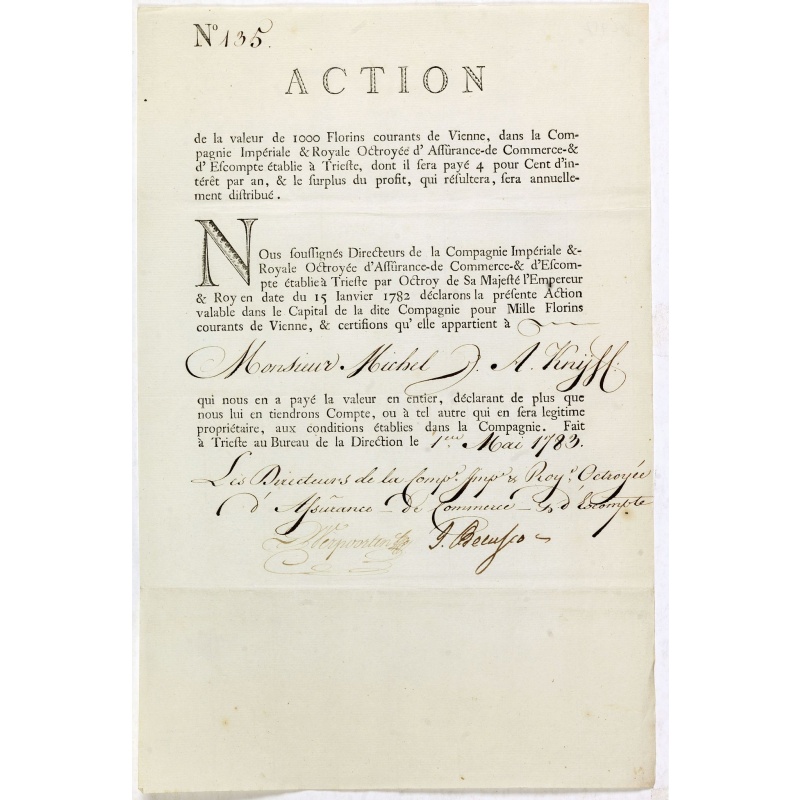 Nº 135.
ACTION
de la valeur de 1000 Florins courants de Vienne, dans la Com-
pagnie Impériale & Royale Octroyée d'Aſſûrance-de Commerce-&
d'Eſcompte établie à Trieſte, dont il ſera payé 4 pour Cent d'in-
térêt par an, & le ſurplus du profit, qui réſultera, ſera annuelle-
ment diſtribué.
NOus ſouſſignés Directeurs de la Compagnie Impériale &-
Royale Octroyée d'Aſſûrance-de Commerce-& d'Eſcom-
pte établie à Trieſte par Octroy de Sa Majeſté l'Empereur
& Roy en date du 15 Ianvier 1782 déclarons la préſente Action
valable dans le Capital de la dite Compagnie pour Mille Florins
courants de Vienne, & certifions qu'elle appartient à
Monsieur Michel J. A. Knyff.
qui nous en a payé la valeur en entier, déclarant de plus que
nous lui en tiendrons Compte, ou à tel autre qui en ſera legitime
propriétaire, aux conditions établies dans la Compagnie. Fait
à Trieſte au Bureau de la Direction le 1er Mai 1783.
Les Directeurs de la Compe. Impe & Roye. Octroyée
d'Aſſûrance - de Commerce - & d'Escompte